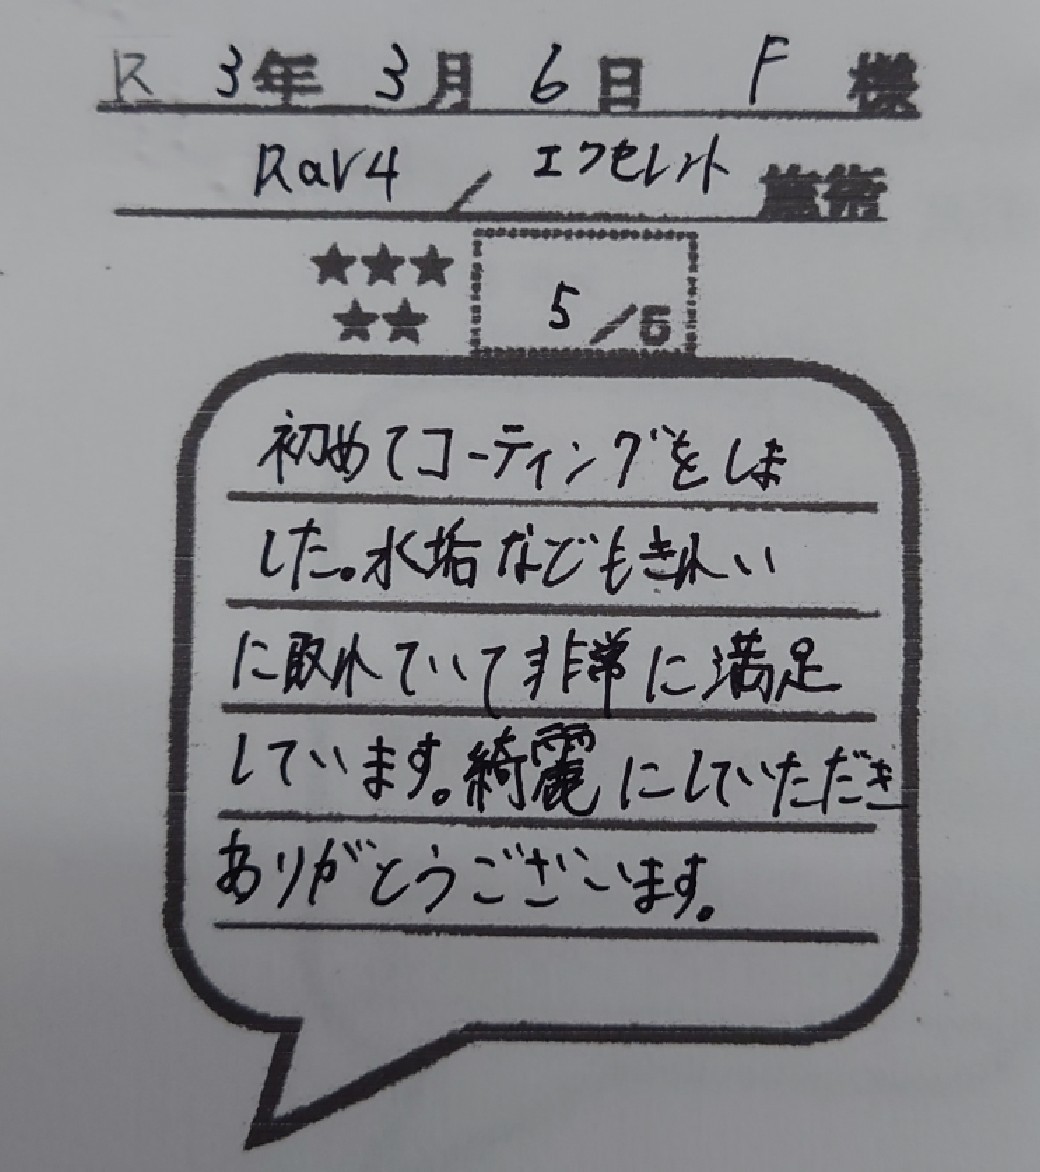 R 3年 3月 6日 F 様
Rav4 / エクセレント 施術
★★★
★★
5/5
初めてコーティングをしま
した。水垢などもきれい
に取れていて非常に満足
しています。綺麗にしていただき
ありがとうございます。